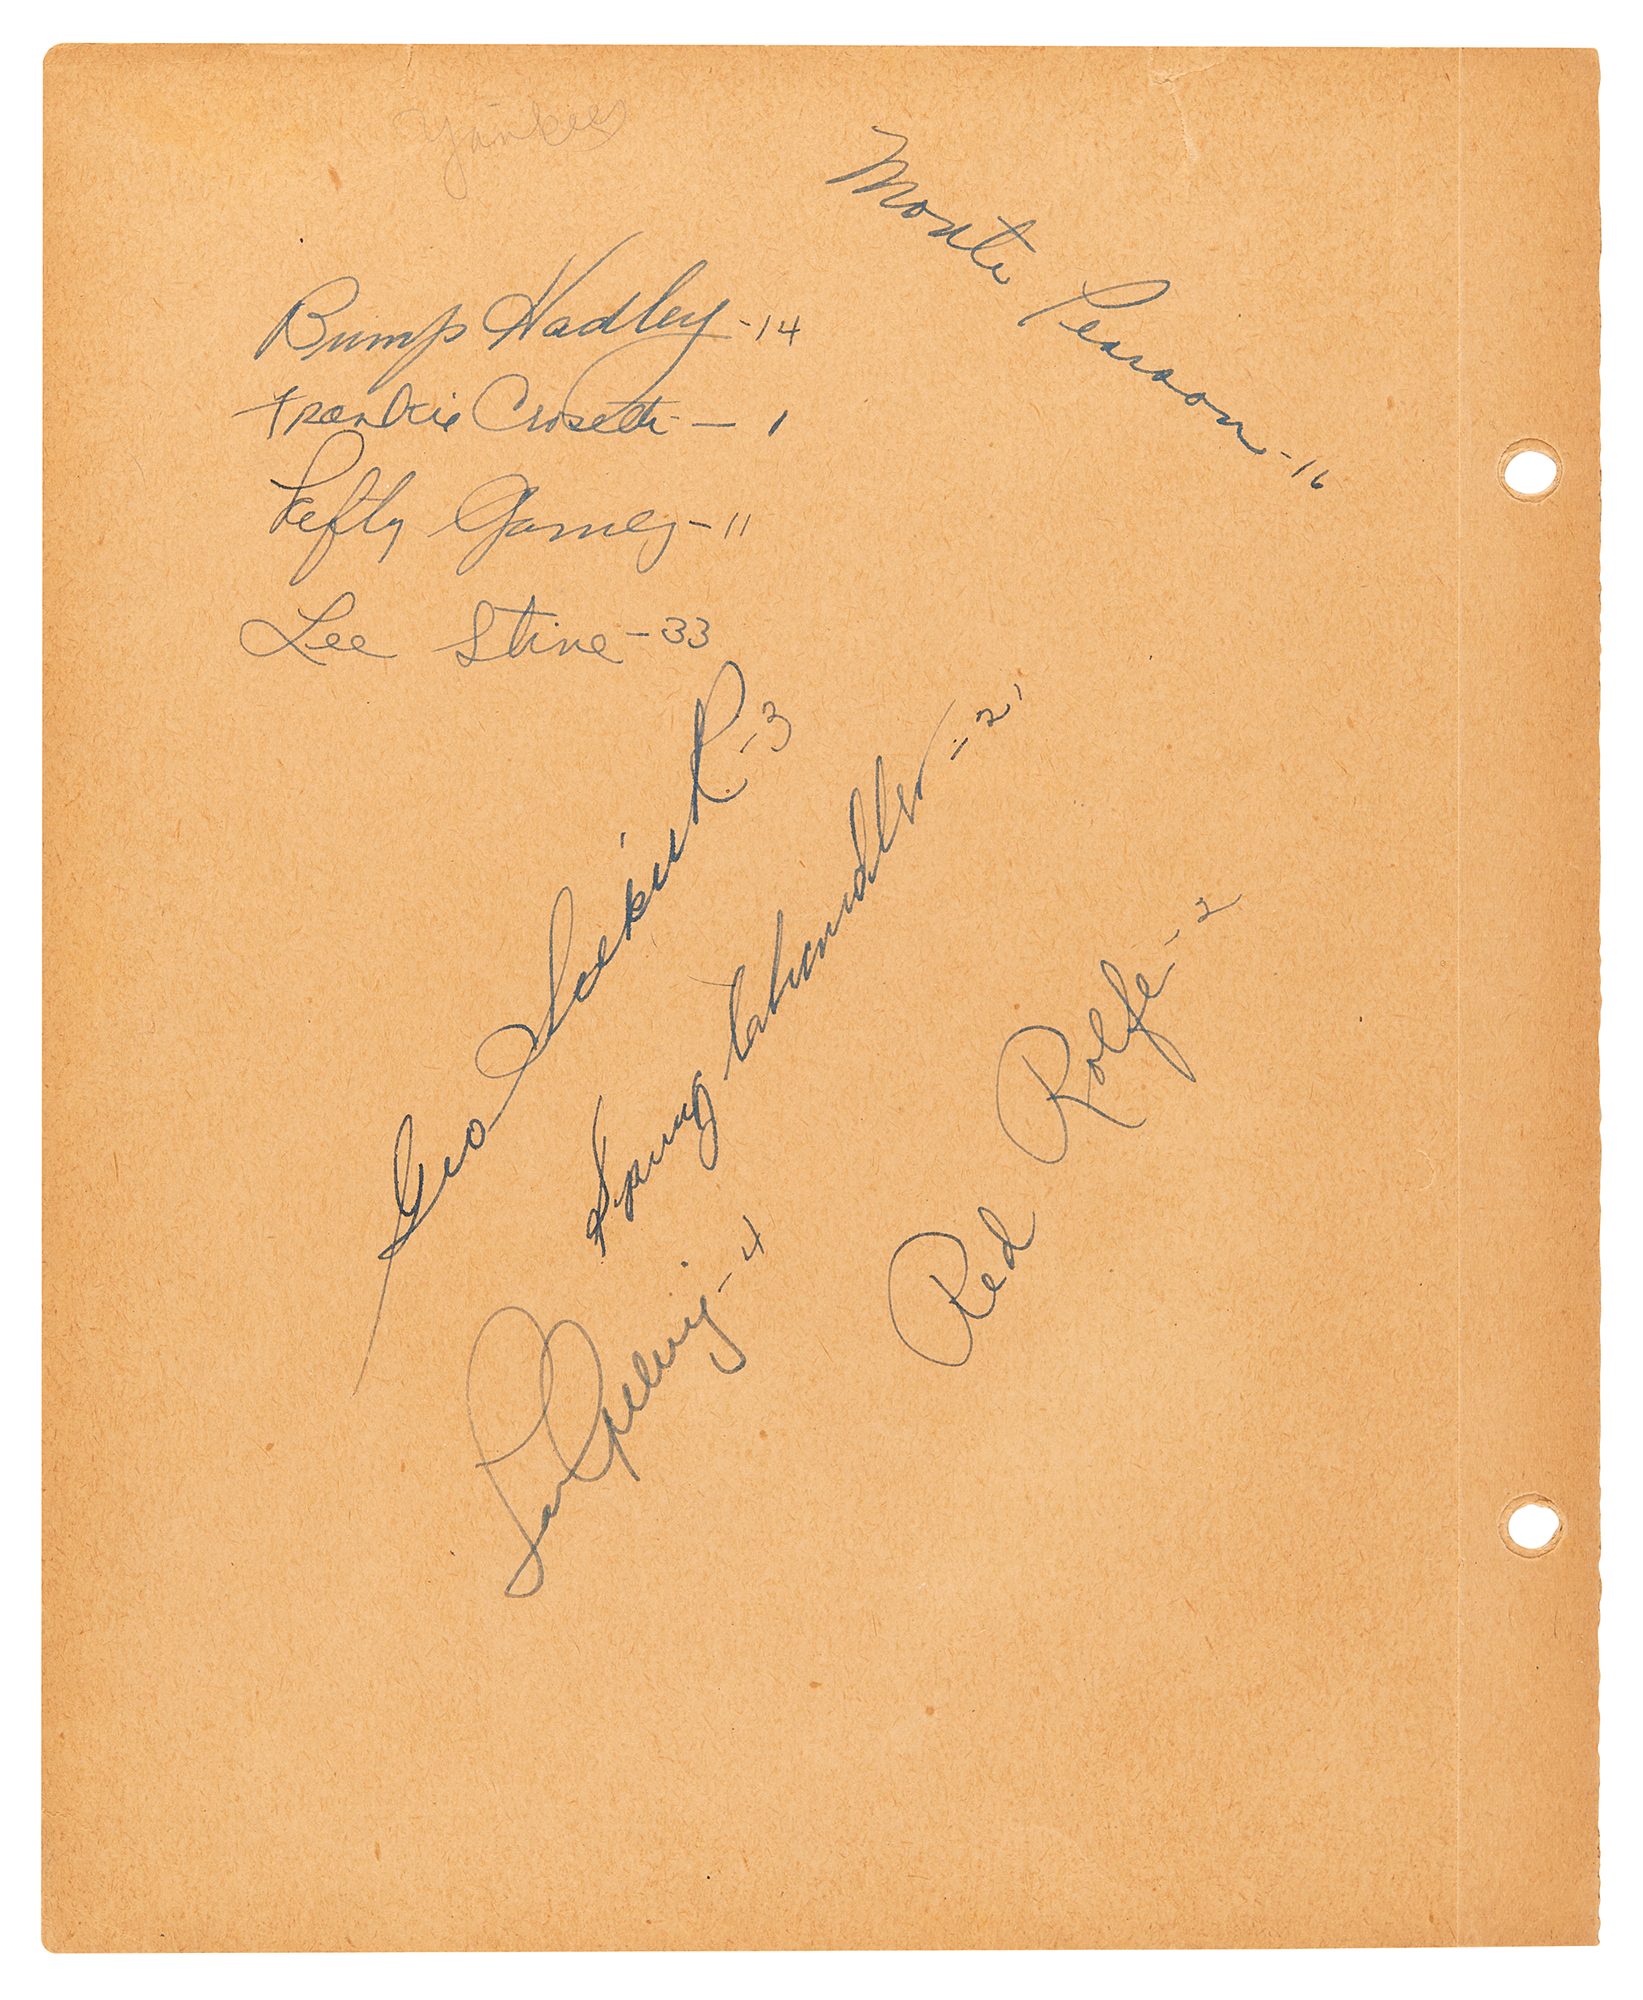 Yankees
Monte Pearson - 16
Bump Hadley - 14
Frankie Crosetti - 1
Lefty Gomez - 11
Lee Stine - 33
Geo Selkirk - 3
Spurg Chandler = 21
Red Rolfe - 2
Lou Gehrig - 4